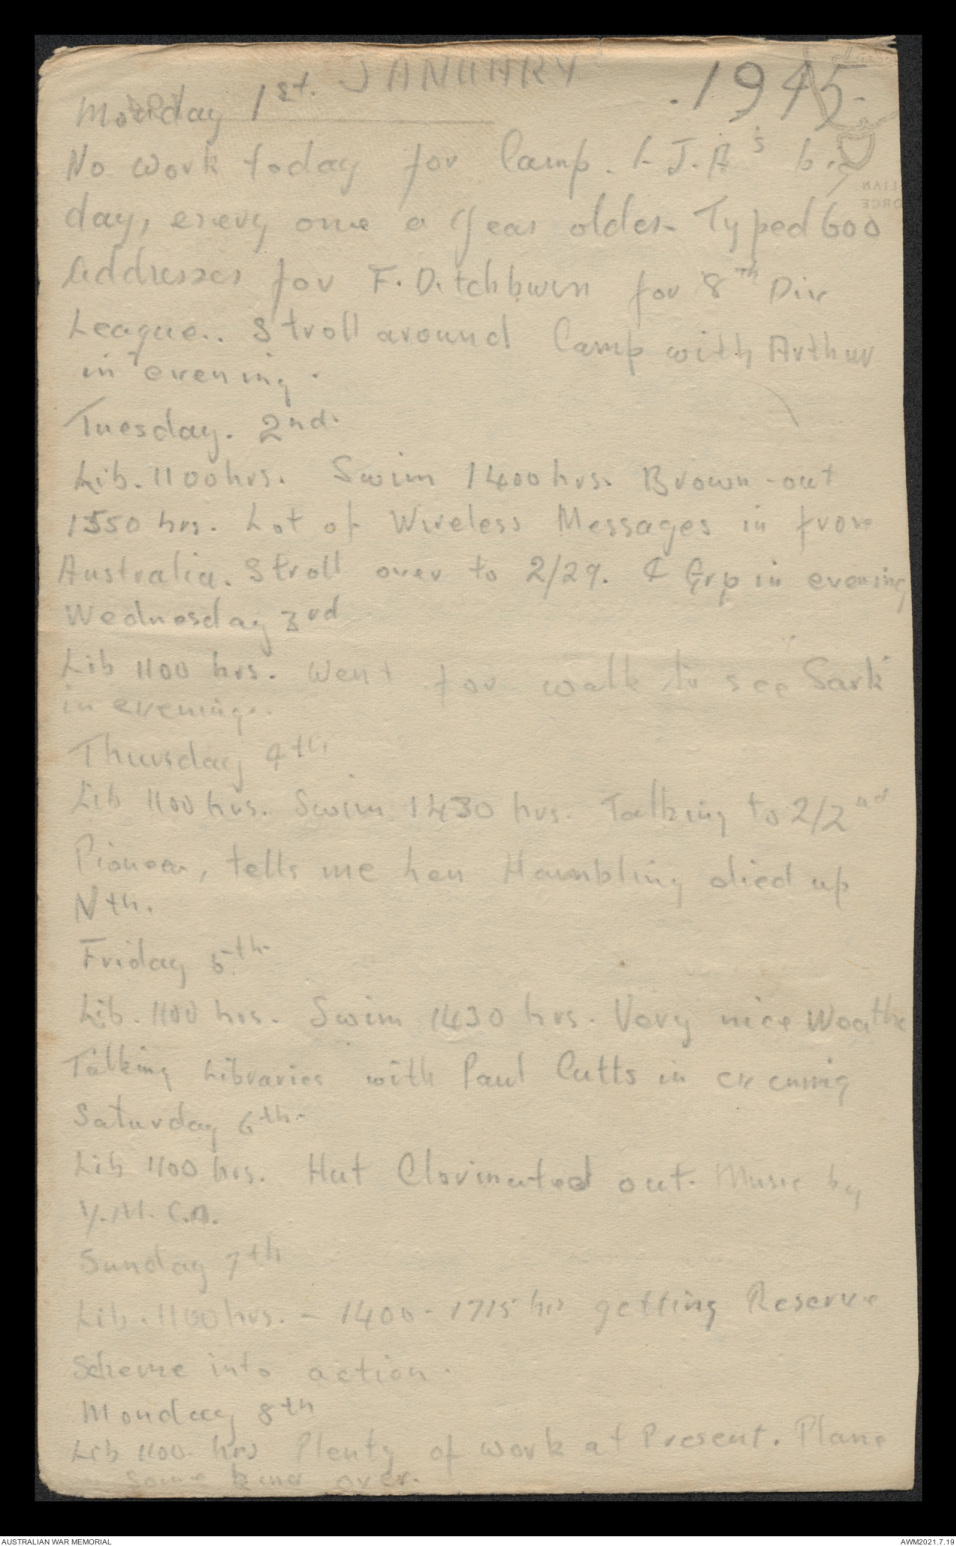 JANUARY
Monday 1st. 1945.
No work today for Camp. I.J.A's b.
day, every one a year older. Typed 600
addresses for F. Ditchburn for 8th Div
League.. Stroll around Camp with Arthur
in evening.
Tuesday. 2nd.
Lib. 1100 hrs. Swim 1400 hrs. Brown-out
1550 hrs. Lot of Wireless Messages in from
Australia. Stroll over to 2/29. & Grp in evening
Wednesday 3rd
Lib 1100 hrs. Went for walk to see "Sark"
in evening.
Thursday 4th.
Lib 1100 hrs. Swim 1430 hrs. Talking to 2/2nd
Pioneer, tells me Len Hambling died up
Nth.
Friday 5th.
Lib. 1100 hrs. Swim 1430 hrs. Very nice Weathe
Talking Libraries with Paul Cutts in evening
Saturday 6th.
Lib 1100 hrs. Hut Clorinated out. Music by
Y.M.C.A.
Sunday 7th
Lib. 1100 hrs. - 1400 - 1715 hrs getting Reserve
Scheme into action.
Monday 8th
Lib 1100 hrs Plenty of work at Present. Plane
some kind over.
AUSTRALIAN WAR MEMORIAL
AWM2021.7.19